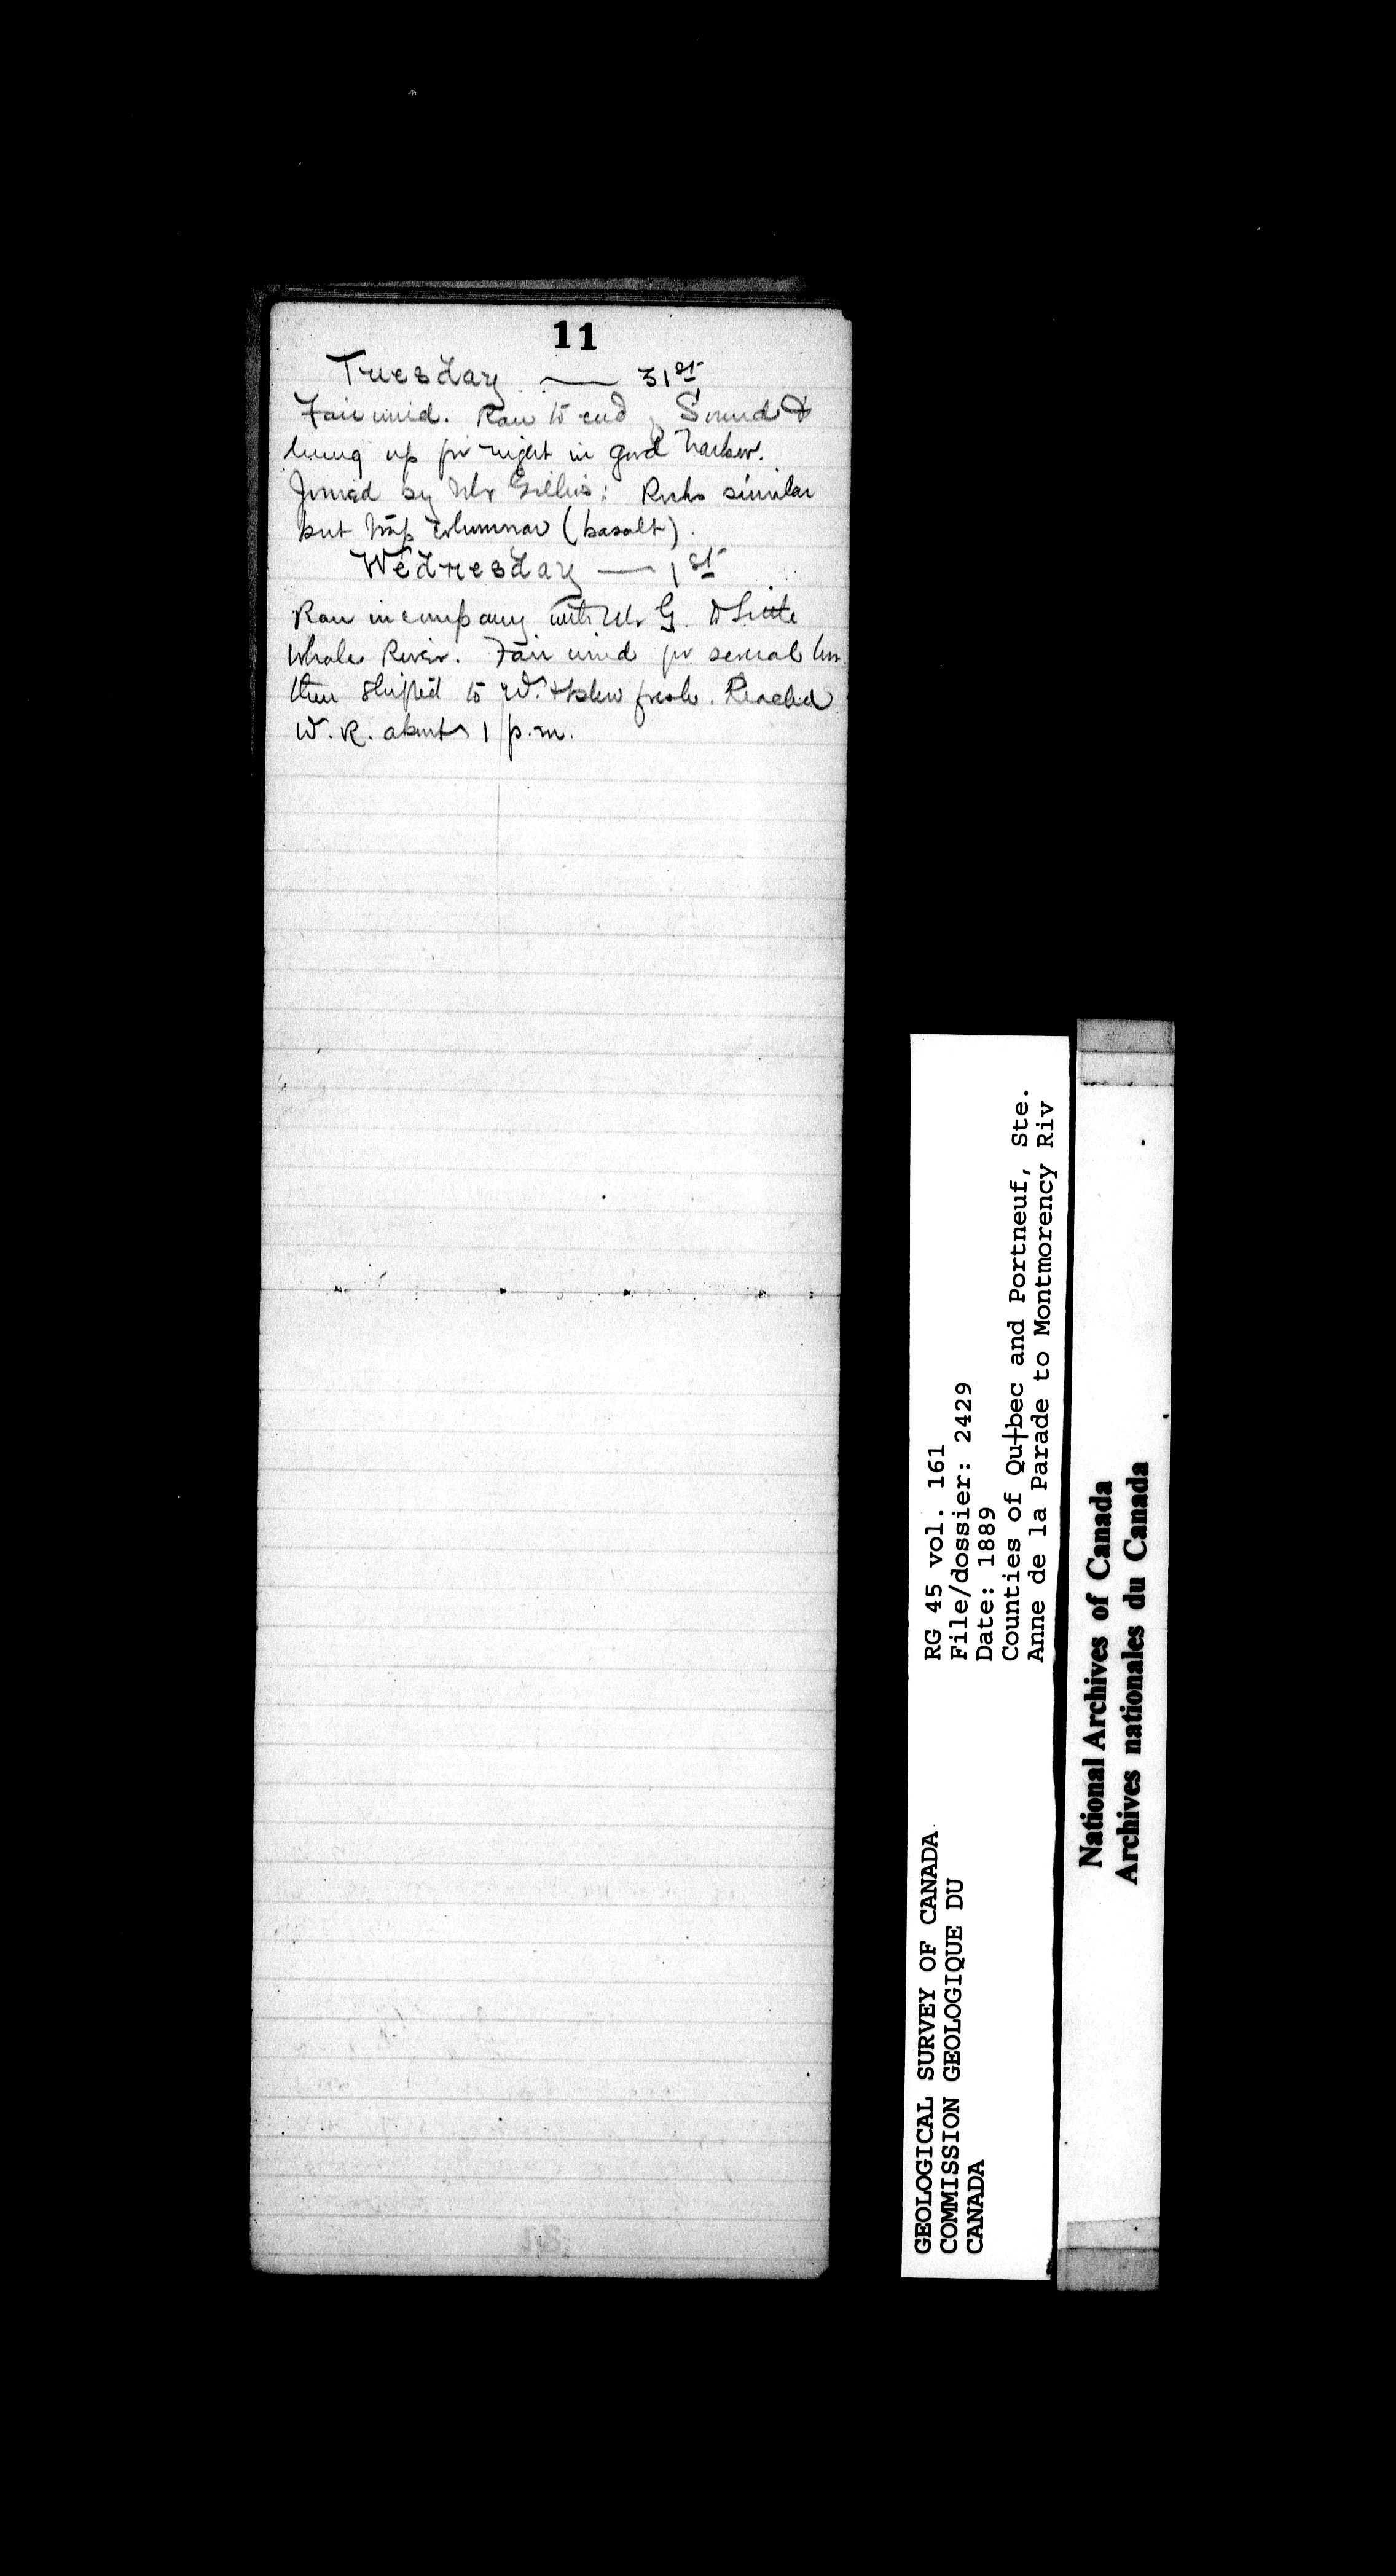 11
Tuesday — 31st
Fair wind. Ran to end of Sound &
hung up for night in good harbor.
Joined by Mr Gillies: Rocks similar
but trap columnar (basalt).
Wednesday — 1st
Ran in company with Mr G. to Little
Whale River. Fair wind for several hrs
then shifted to W. & blew fresh. Reached
W. R. about 1 p.m.
RG 45 vol. 161
File/dossier: 2429
Date: 1889
Counties of Qu┼bec and Portneuf, Ste.
Anne de la Parade to Montmorency Riv
GEOLOGICAL SURVEY OF CANADA
COMMISSION GEOLOGIQUE DU
CANADA
National Archives of Canada
Archives nationales du Canada